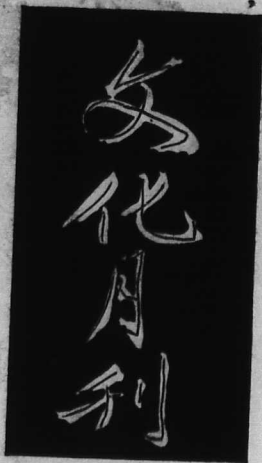 文化月刊